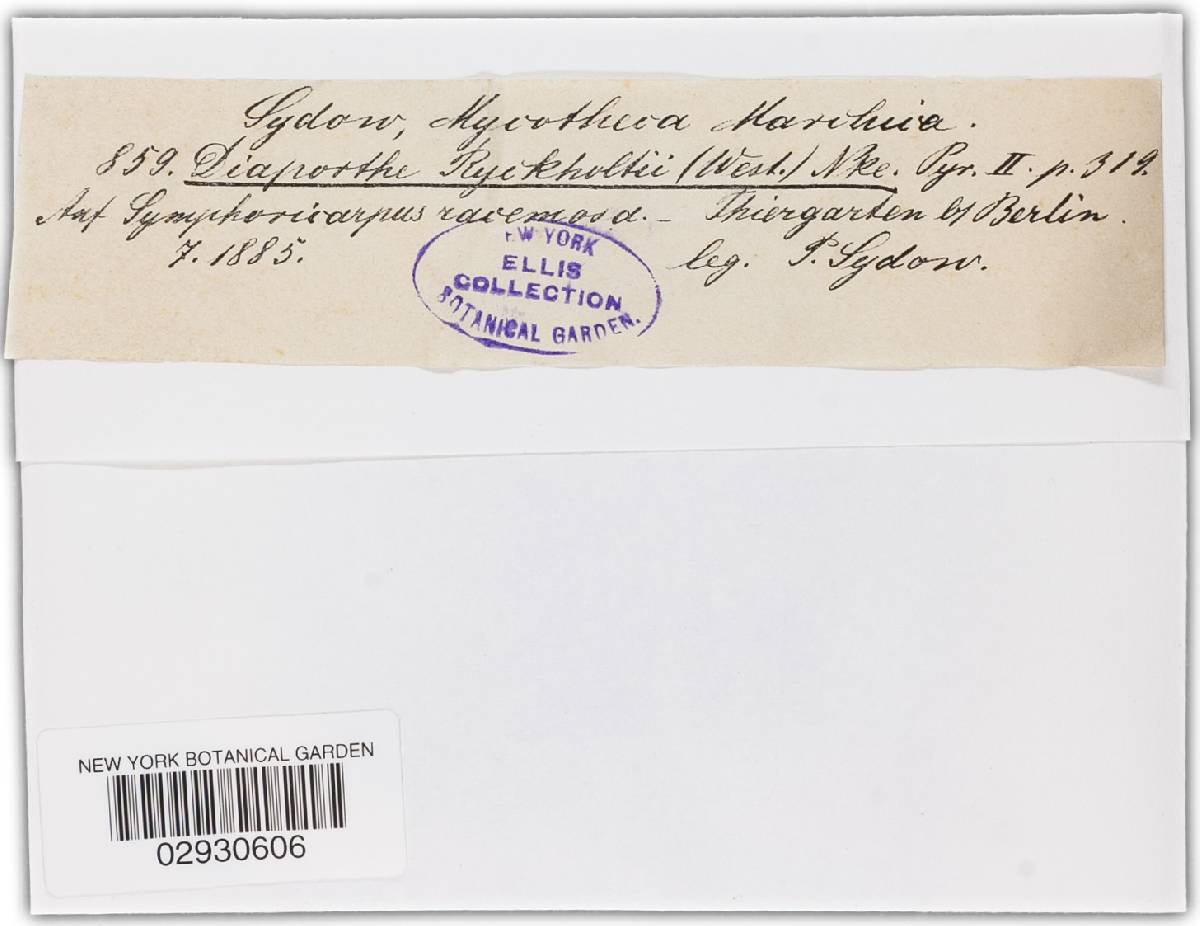 Sydow, Mycotheca Marchica.
859. Diaporthe Ryckholtii (West.) Nke. Pyr. II. p. 319.
Auf Symphoricarpus racemosa. – Thiergarten b/ Berlin.
7. 1885. leg. P. Sydow.
EW YORK
ELLIS
COLLECTION
BOTANICAL GARDEN.
NEW YORK BOTANICAL GARDEN
02930606